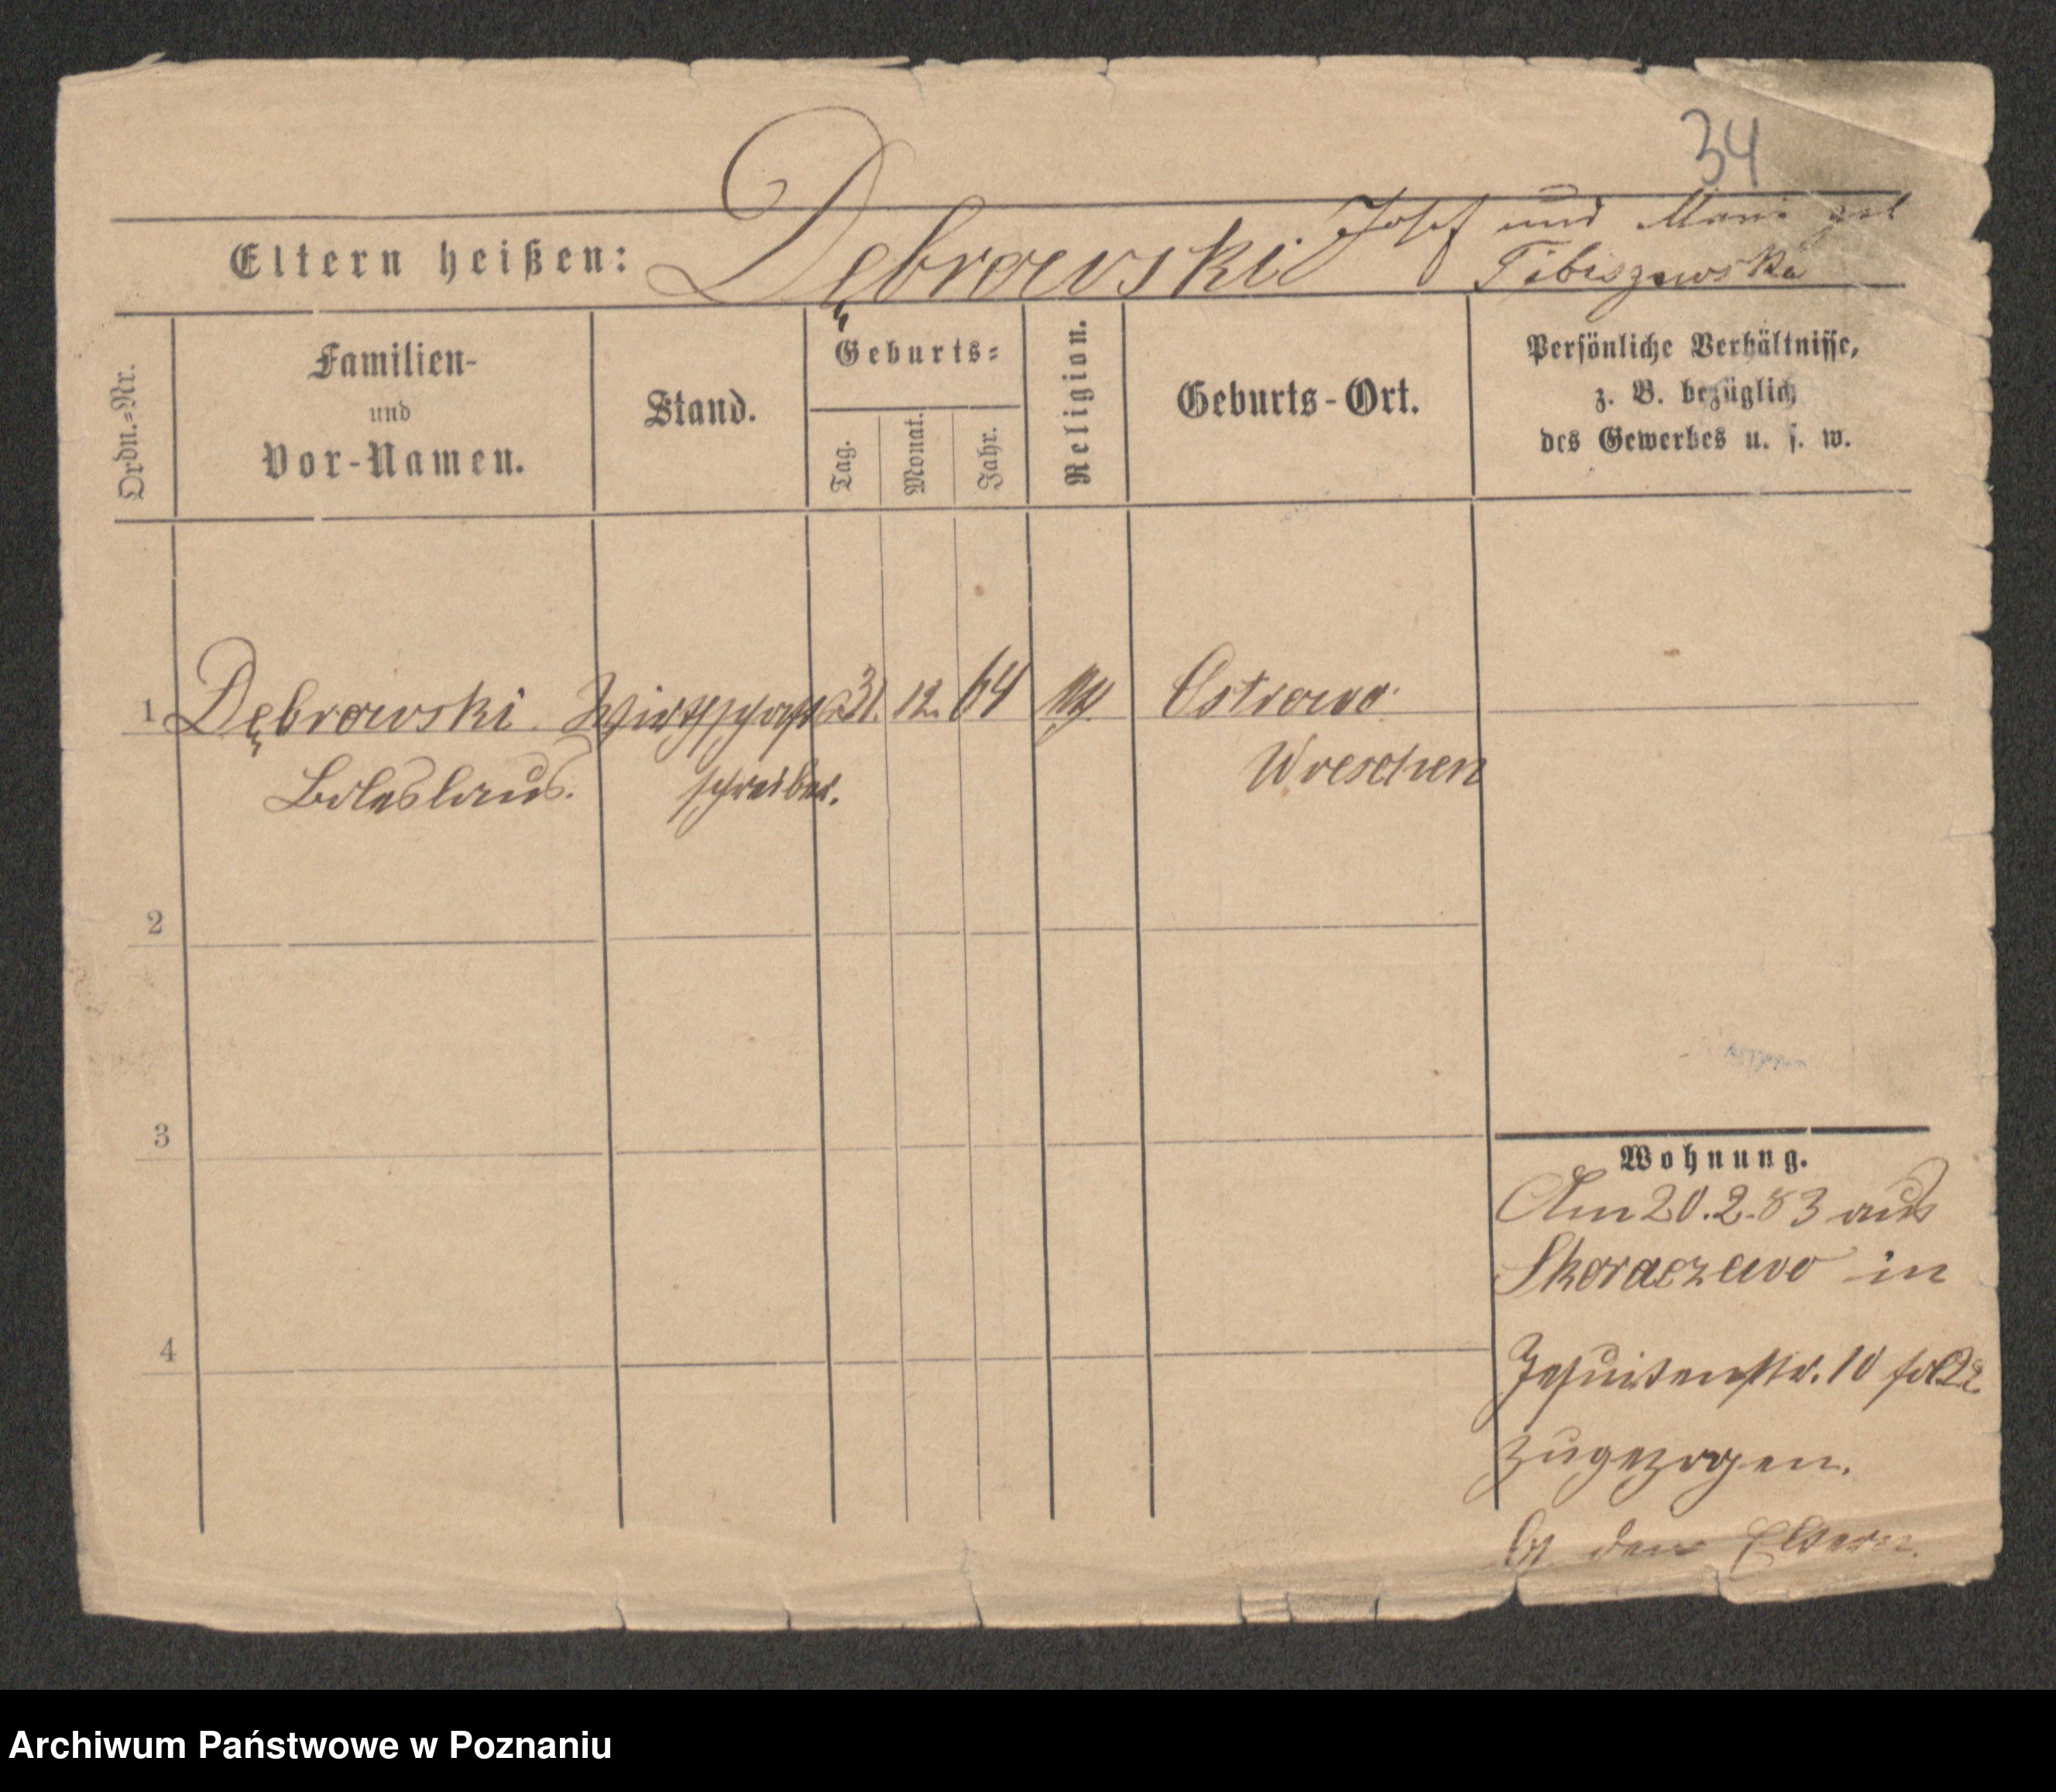 34
Eltern heißen: Dębrowski Josef und Marie geb
Tibiszewska
Ordn.=Nr.
Familien-
und
Vor-Namen.
Stand.
Geburts=
Tag.
Monat.
Jahr.
Religion.
Geburts-Ort.
Persönliche Verhältnisse,
z. B. bezüglich
des Gewerbes u. s. w.
1 Dębrowski Wirthschafts 31. 12. 64 Ostrowo
Boleslaus. schreiber. Wreschen
2
3
4
Wohnung.
Am 20.2.83 aus
Skoraczewo in
Jesuitenstr. 10
zugezogen.
den Eltern.
Archiwum Państwowe w Poznaniu